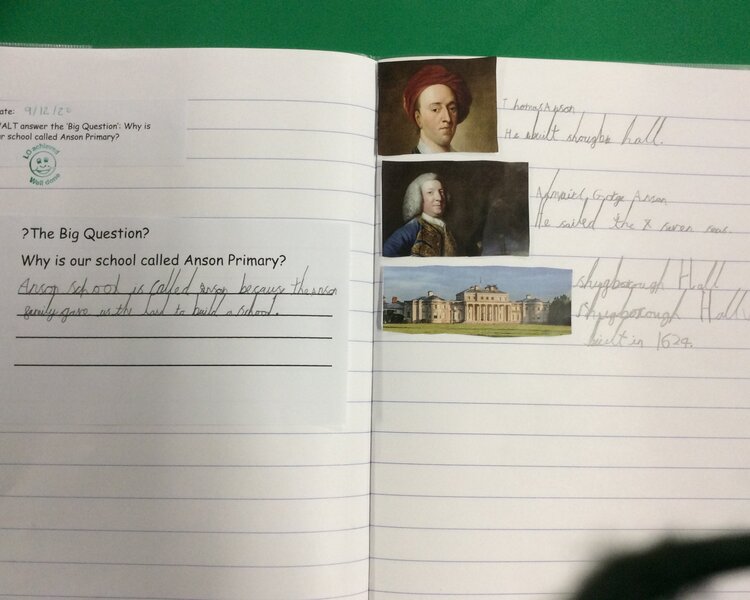 ate: 9/12/20
ALT answer the 'Big Question': Why is
r school called Anson Primary?
LO achieved
Well done
?The Big Question?
Why is our school called Anson Primary?
Anson school is called anson because the anson
family gave us the land to build a school.
Thomas Anson
He built hall.
Admairl George Anson
He sailed the seven seas.
shugborough Hall
Shugborough Hall
built in 1624.